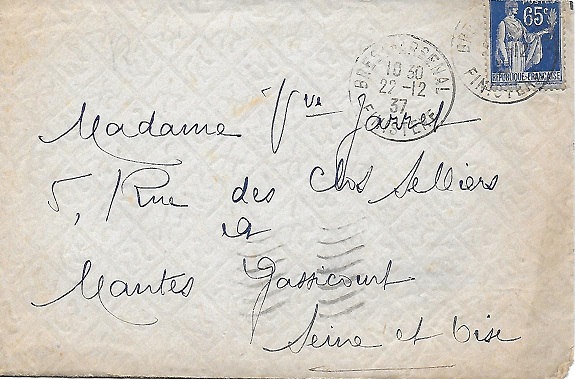 POSTES
65c
RÉPUBLIQUE FRANÇAISE
BREST ARSENAL
10 30
22-12
37
FINISTERE
Madame Vve Jarret
5, Rue des Clos Selliers
à
Mantes Gassicourt
Seine et Oise